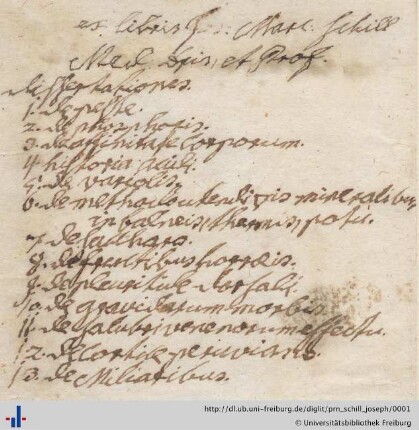 ex libris Jos. Marc. Schill
Med. Dris, et Prof.
dissertationes.
1. de peste.
2. de phosphoris.
3. de affinitate corporum.
4. historia
5. de variolis.
6. de methodo utendi mineralibus
in balneis, thermis, potu.
7. de
8. de fructibus horaeis.
9. de pleuritide dorsali.
10. de gravidarum morbis.
11. de salubri venenorum effectu.
12. de Cortice peruviano.
13. de Miliaribus.
http://dl.ub.uni-freiburg.de/diglit/prn_schill_joseph/0001
© Universitätsbibliothek Freiburg